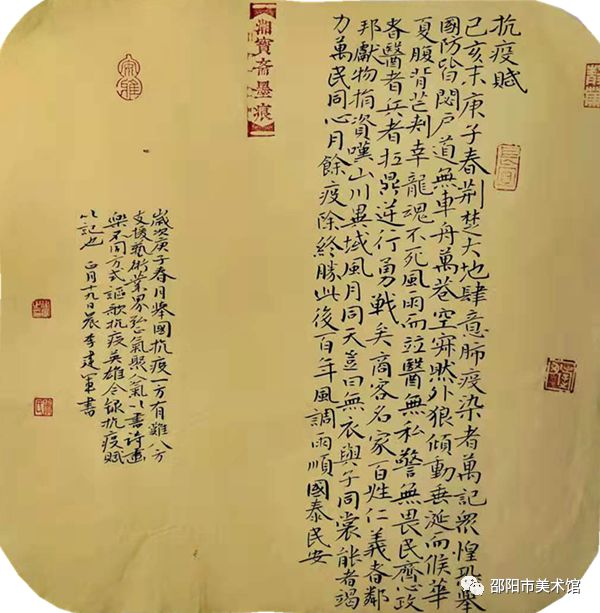 抗疫赋
己亥末庚子春荆楚大地肆意肺疫染者萬記眾惶恐舉
國防皆閉户道無車舟萬巷空寂然外狼傾動垂涎而候華
夏腹背芒刺幸龍魂不死風雨而立醫無私警無畏民齊心政
者醫者兵者扛鼎逆行勇戰矣商客名家百姓仁義者鄰
邦獻物捐資嘆山川異域風月同天喜曰無衣與子同裳能者竭
力萬民同心月餘疫除終勝此後百年風調雨順國泰民安
湘寶齋墨痕
歲次庚子春月舉國抗疫一方有難八方
支援藝術業界弘正氣聚人氣以書詩畫
樂不同方式謳歌抗疫英雄今錄抗疫賦
以記也 正月十九日晨李建軍書
邵阳市美术馆